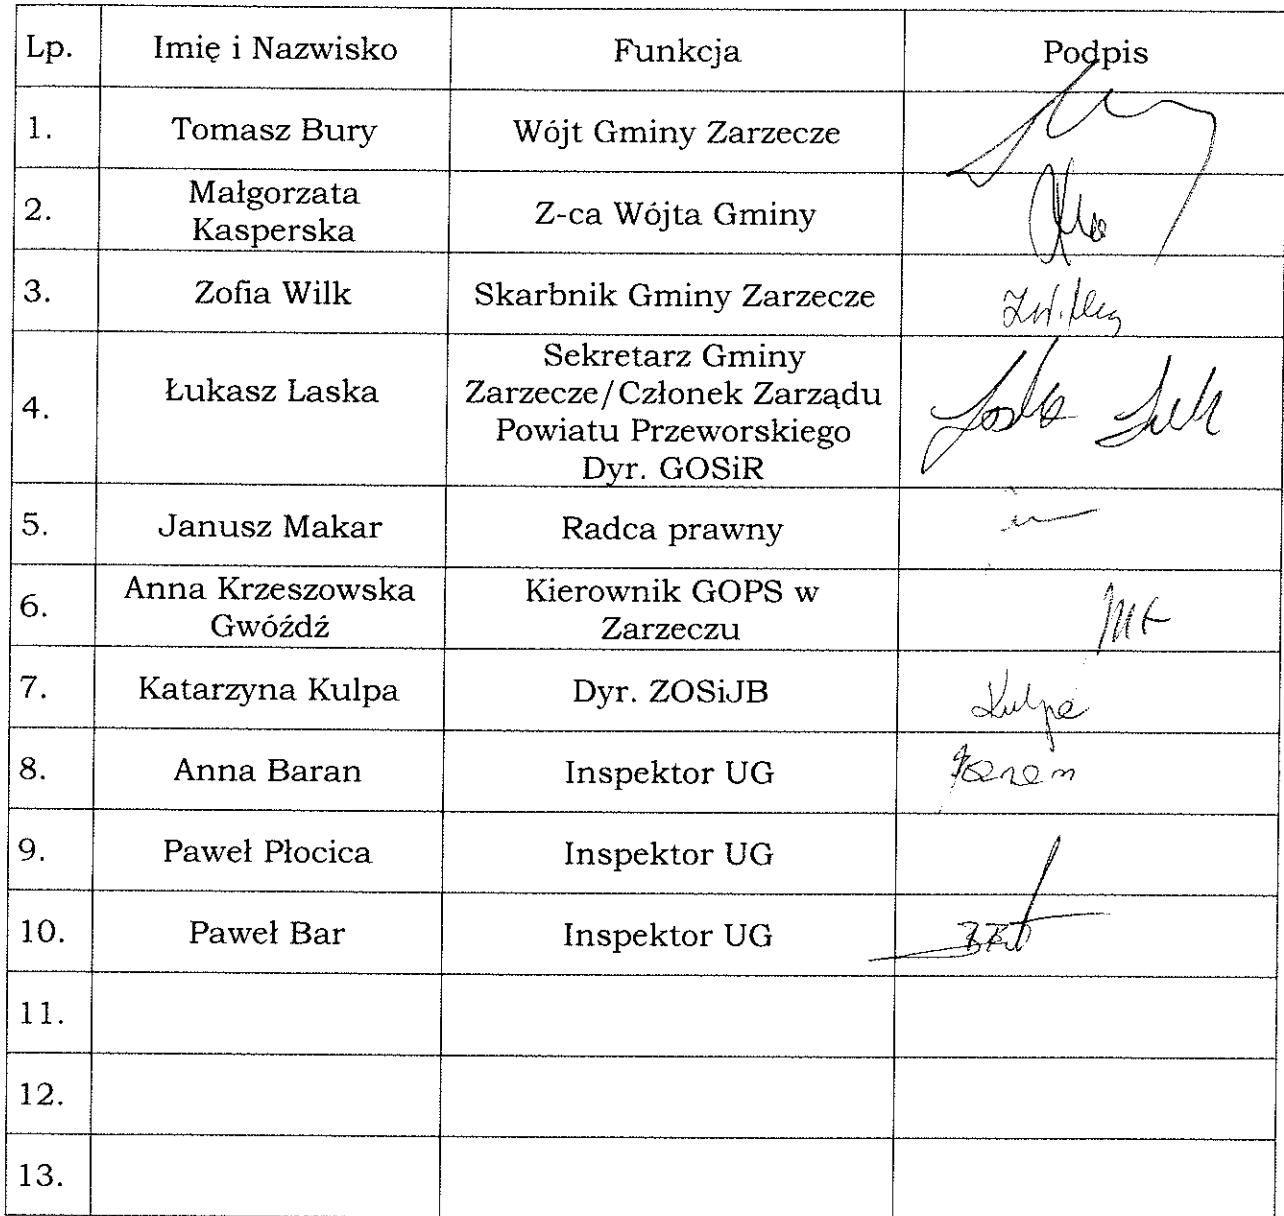 Lp. Imię i Nazwisko Funkcja Podpis
1. Tomasz Bury Wójt Gminy Zarzecze
2. Małgorzata
Kasperska Z-ca Wójta Gminy
3. Zofia Wilk Skarbnik Gminy Zarzecze
4. Łukasz Laska Sekretarz Gminy
Zarzecze/Członek Zarządu
Powiatu Przeworskiego
Dyr. GOSiR
5. Janusz Makar Radca prawny
6. Anna Krzeszowska
Gwóźdź Kierownik GOPS w
Zarzeczu
7. Katarzyna Kulpa Dyr. ZOSiJB Kulpa
8. Anna Baran Inspektor UG
9. Paweł Płocica Inspektor UG
10. Paweł Bar Inspektor UG
11.
12.
13.